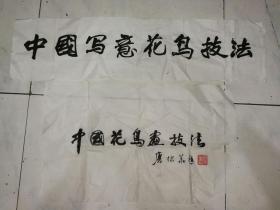 中國写意花鸟技法
中國花鸟画技法